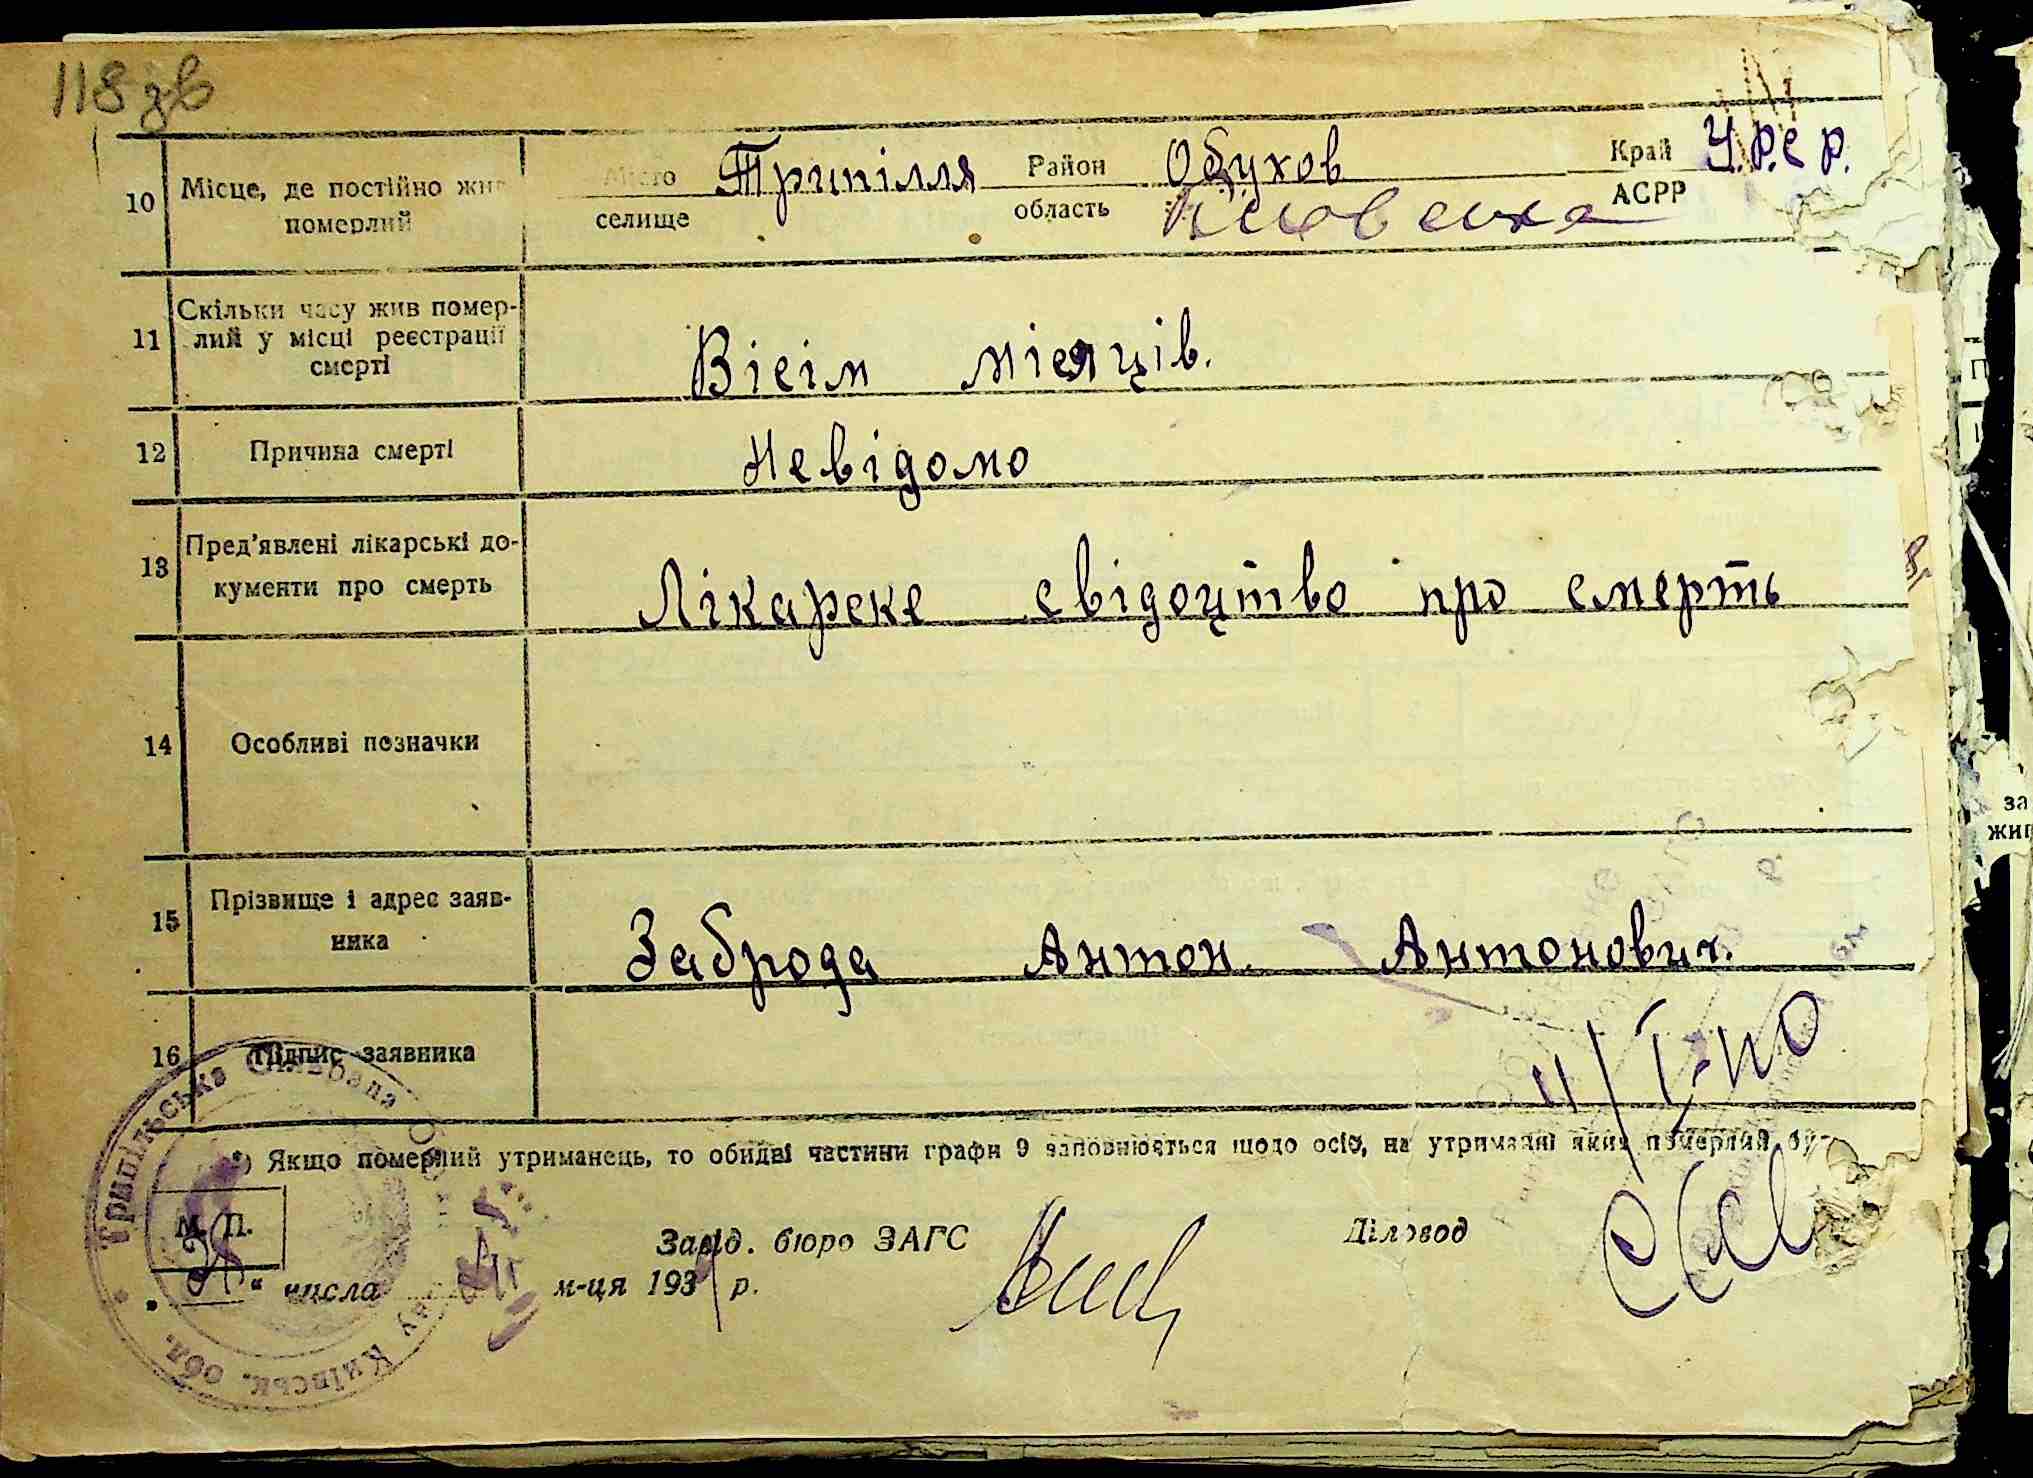 118 зв
10 Місце, де постійно жив померлий
Місто Трипілля Район Обухов Край У.Р.С.Р.
селище область Київська АСРР
11 Скільки часу жив помер-
лий у місці реєстрації
смерті
Вісім місяців.
12 Причина смерті Невідомо
13 Пред'явлені лікарські до-
кументи про смерть
Лікарске свідоцтво про смерть
14 Особливі позначки
15 Прізвище і адрес заяв-
ника
Заброда Антон Антонович.
16 Підпис заявника
*) Якщо померлий утриманець, то обидві частини графи 9 заповнюється щодо осіб, на утриманні яких померлий
Трипільська Сільрада
Київськ. обл.
М. П.
Завід. бюро ЗАГС Діловод
" числа м-ця 193 р.
за
жит